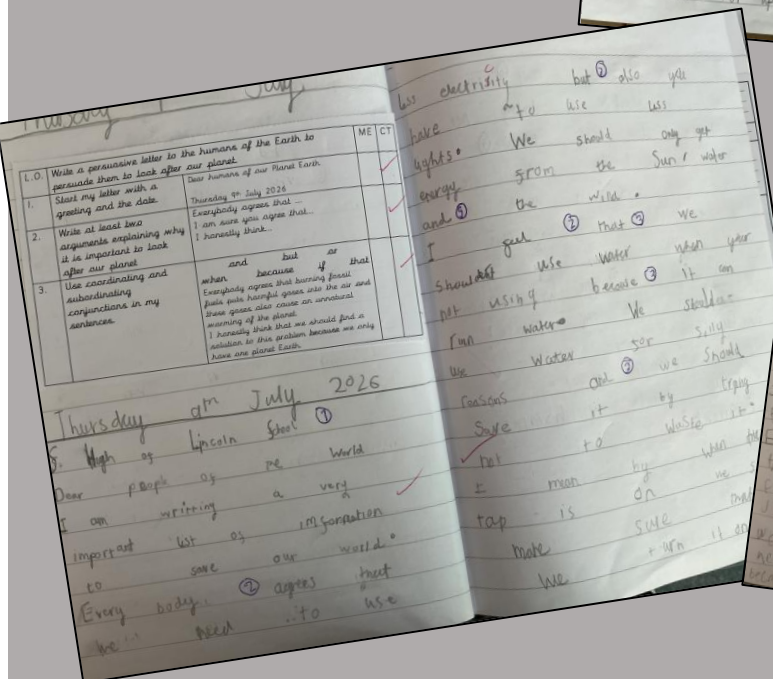 Thursday July
ME CT
L.O. Write a persuasive letter to the humans of the Earth to
persuade them to look after our planet.
1. Start my letter with a
greeting and the date.
Dear humans of our Planet Earth
Thursday 9th July 2026
2. Write at least two
arguments explaining why
it is important to look
after our planet
Everybody agrees that ...
I am sure you agree that...
I honestly think...
3. Use coordinating and
subordinating
conjunctions in my
sentences.
and but or
when because if that
Everybody agrees that burning fossil
fuels puts harmful gases into the air and
these gases also cause an unnatural
warming of the planet.
I honestly think that we should find a
solution to this problem because we only
have one planet Earth.
Thursday 9th July 2026
S. Hugh of Lincoln School 1
Dear people of the World
I am writting a very
important list of imformation
to save our world.
Every body 2 agrees that
we need to use
less electrisity but 3 also you
have to use less
lights. We should only get
energy from the Sun, water
and 3 the wild.
I feel 2 that 3 we
should use water when your
not using because 3 it can
water. We
use water for silly
reasons and 3 we should
Save it by trying
not to waste it.
I mean by when the
tap is on we
make sure that
We turn it